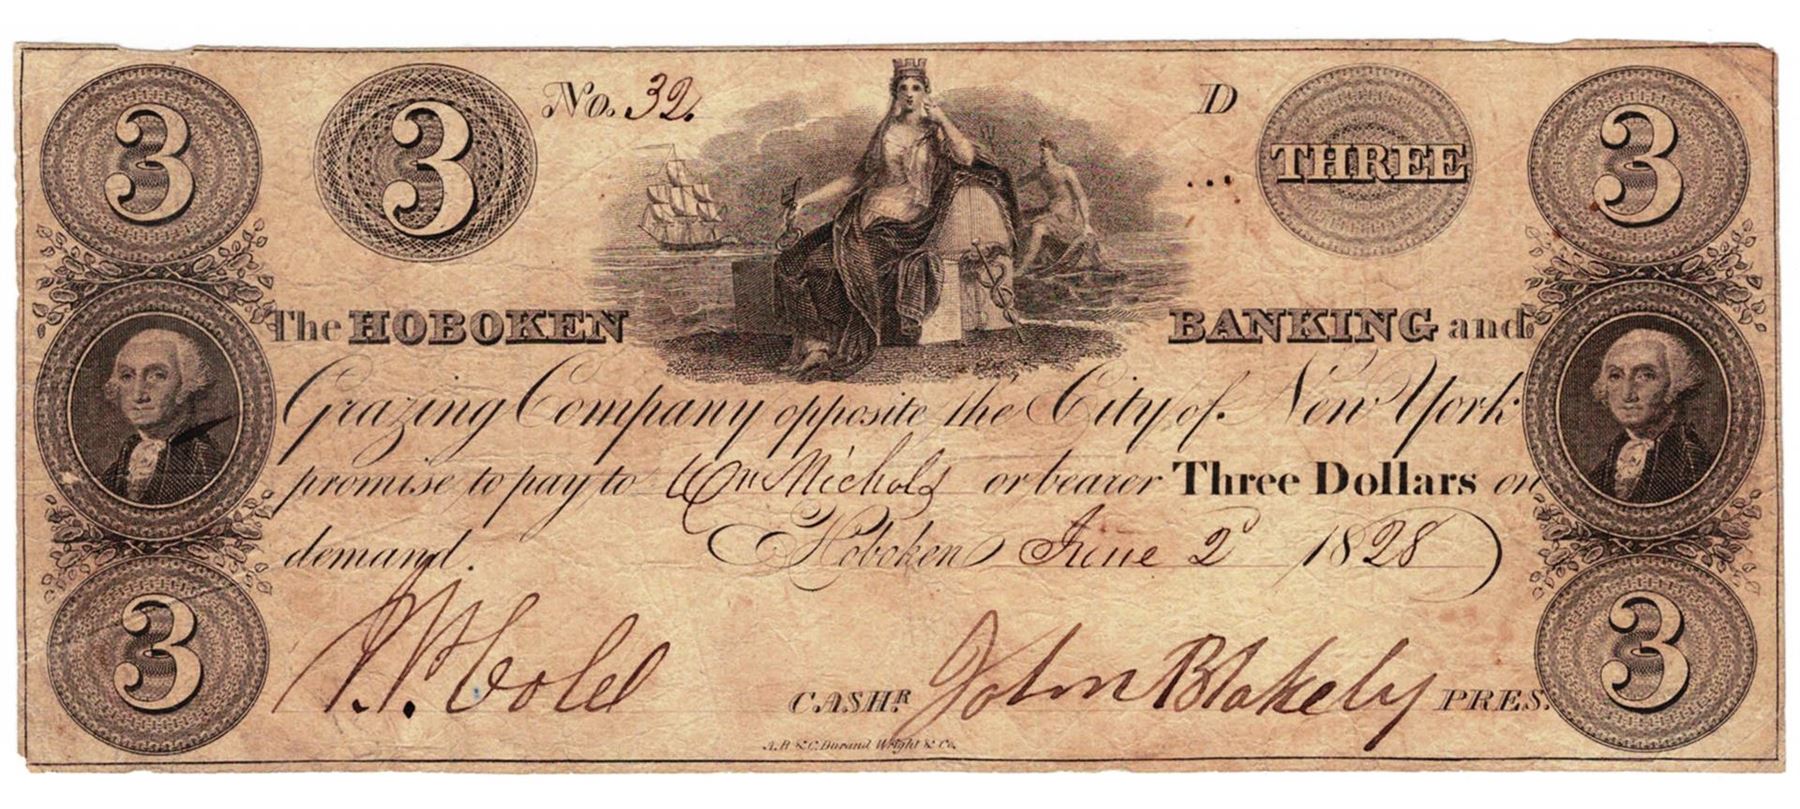 3 3 No. 32. D THREE 3
The HOBOKEN BANKING and
Grazing Company opposite the City of New York
promise to pay to Wm Nichols or bearer Three Dollars on
demand. Hoboken June 2d 1828
3 CASHR. John Blakely PRES. 3
A.B & C. Durand, Wright & Co.